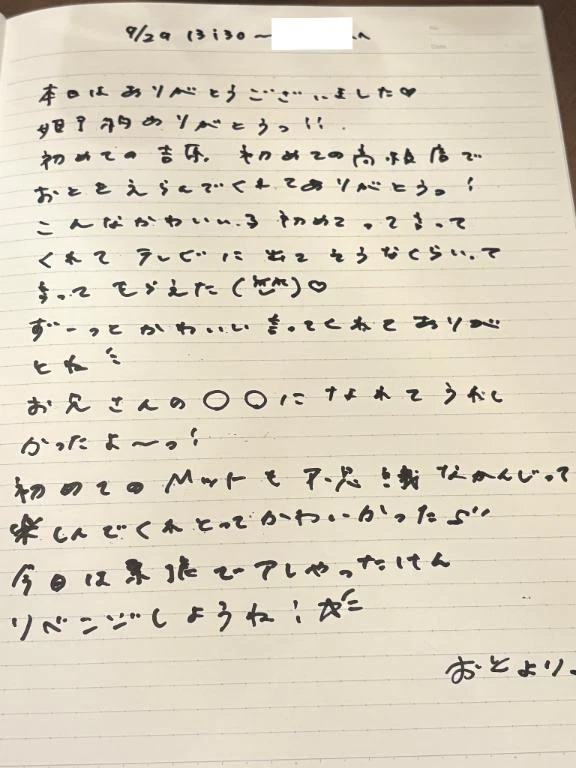 9/29 13:30〜
本日はありがとうございました♡
ありがとうっ!!
初めての吉原、初めての高級店で
おとをえらんでくれてありがとうっ!
こんなかわいい子初めてって言って
くれてテレビに出てそうなくらいって
言ってもらえた ♡
ずーっとかわいい言ってくれてありが
とね
お兄さんの〇〇になれてうれし
かったよ〜っ!
初めてのマットも不思議なかんじって
楽しんでくれとってかわいかったよ
今日は緊張でしちゃったけん
リベンジしようね!☆
おとより